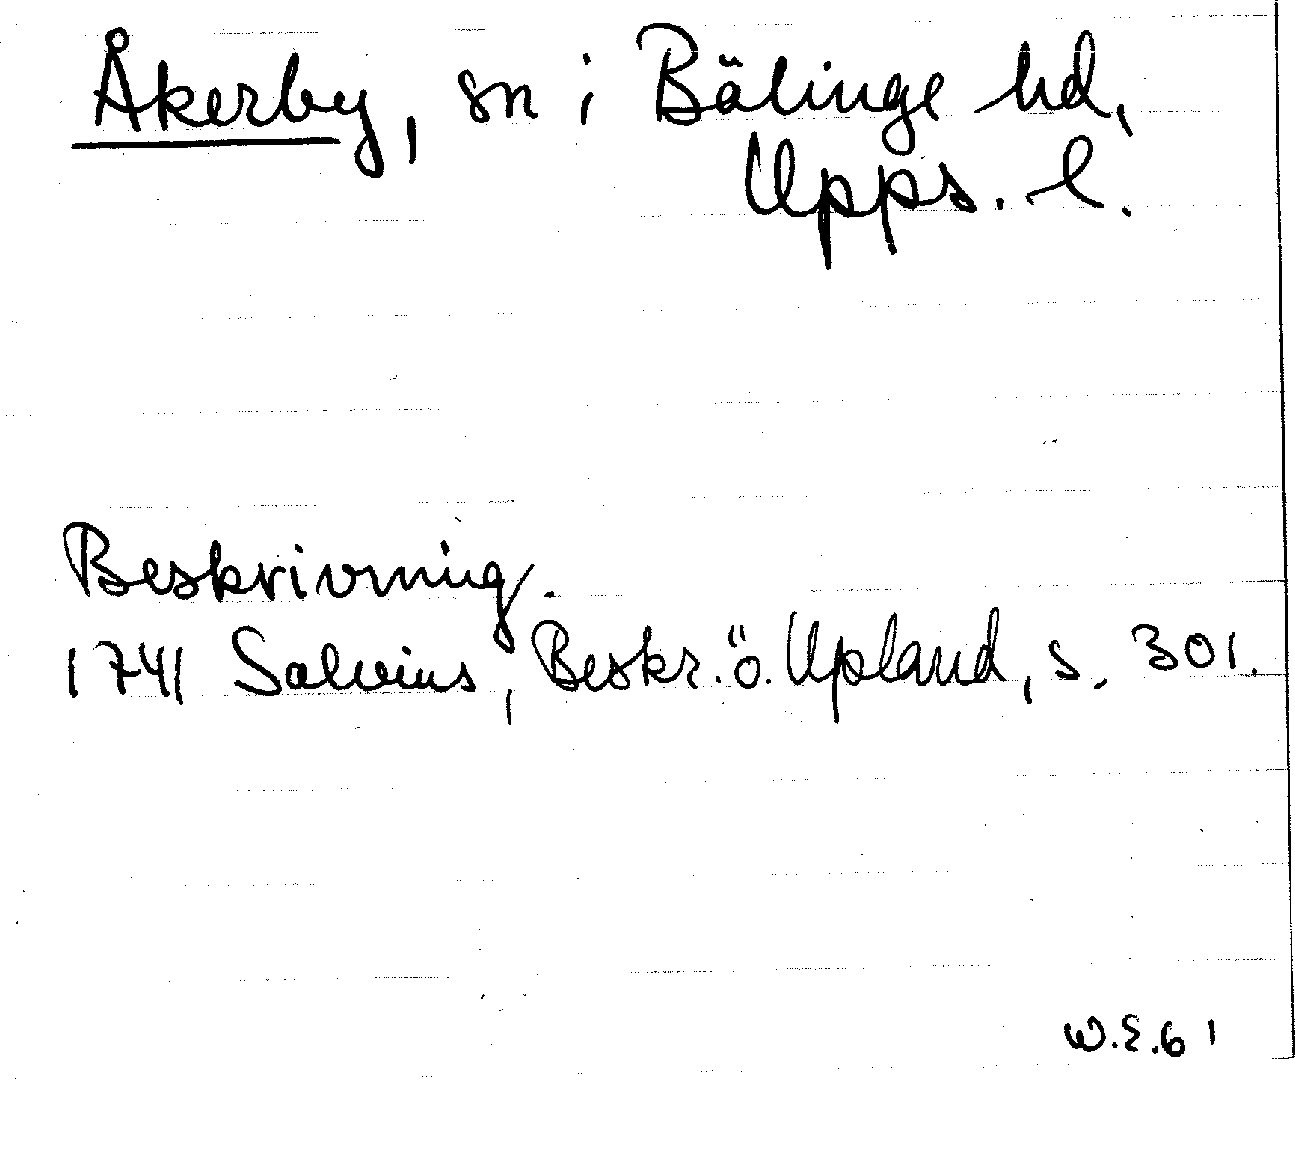 Åkerby, sn i Bälinge hd,
Upps. l.
Beskrivning.
1741 Salvius, Beskr. ö. Upland, s. 301.
W.E.61